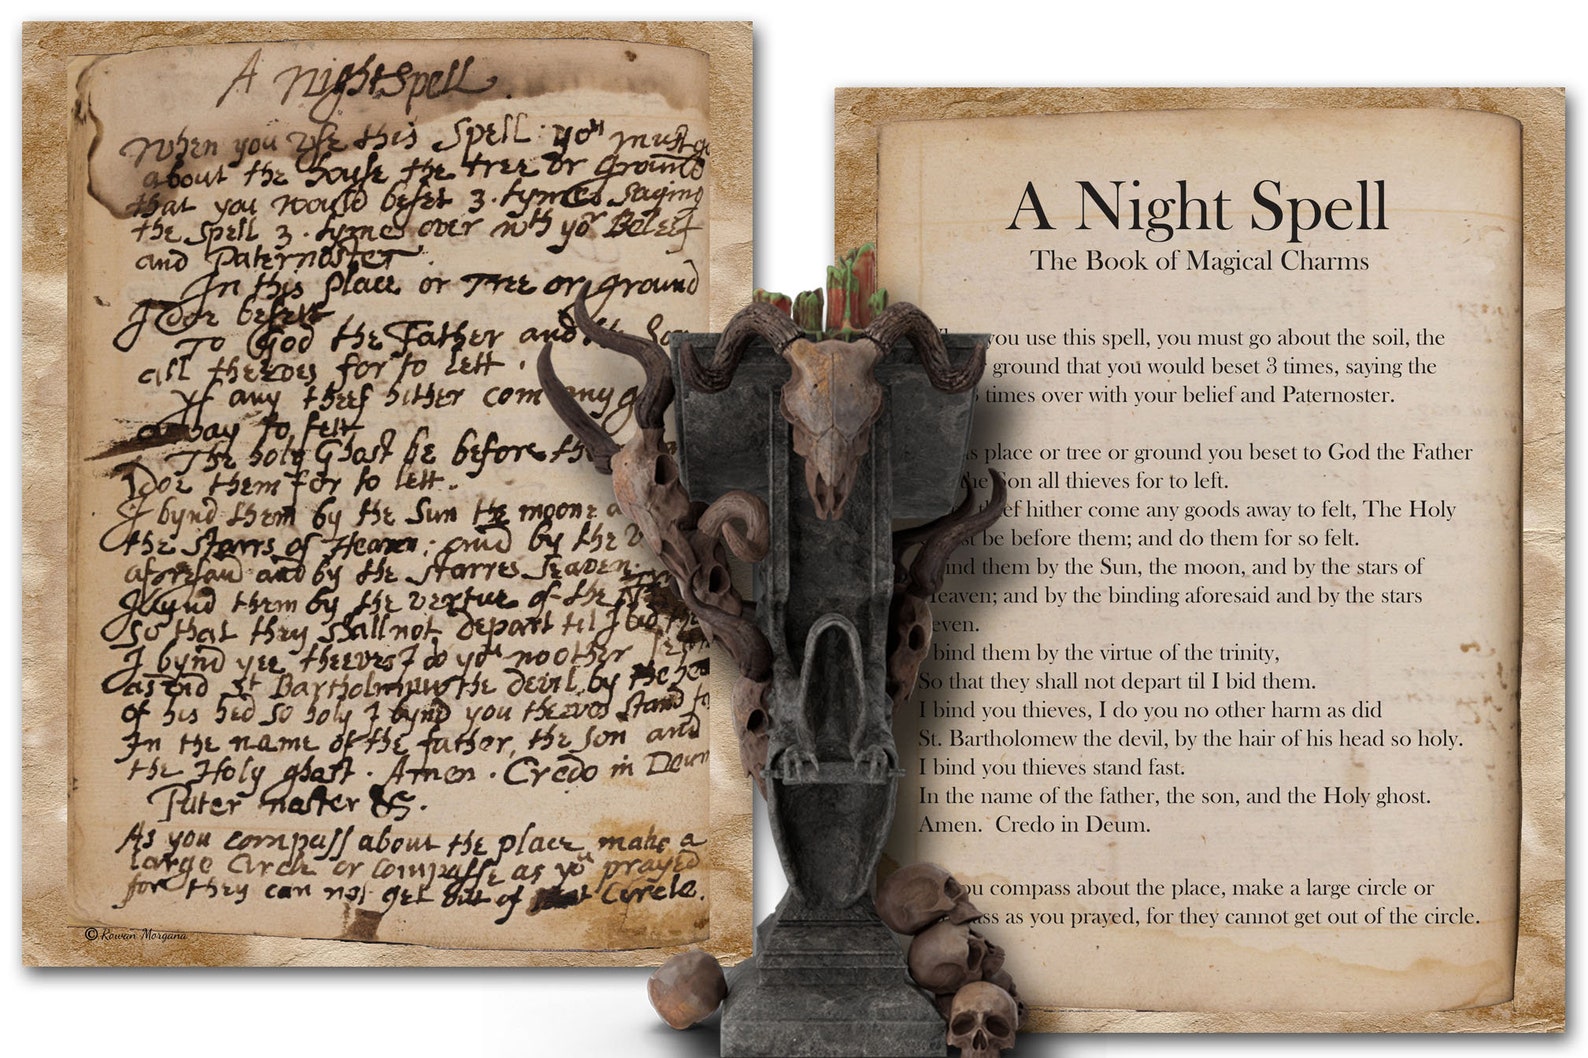 A Night Spell.
When you use this Spell yoᵘ must go
about the house the tree or ground
that you would beset 3. tymes saying
the spell 3. tymes over with yoʳ Beleef
and Paternoster.
In this place or Tree or ground
I doe besett
To God the Father and the Son
all theeves for to lett.
Yf any theef hither com any g
away to felt
The holy Ghost be before th
I doe them for to lett.
I bynd them by the Sun the moone a
the Starrs of Heaven; and by the
aforesaid and by the starres seaven.
I bynd them by the vertue of the
so that they shall not depart til I bid
I bynd yee theeves I do yoᵘ no other
as did St Bartholmew the devil by the
of his hed so holy I bynd you theeves stand
In the name of the father, the son and
the Holy ghost. Amen. Credo in Deum
Pater noster &c.
As you compass about the place make a
large Circle or compasse as yoᵘ prayed
for they can not get out of Cyrcle.
© Rowan Morgana
A Night Spell
The Book of Magical Charms
you use this spell, you must go about the soil, the
ground that you would beset 3 times, saying the
times over with your belief and Paternoster.
place or tree or ground you beset to God the Father
Son all thieves for to left.
hither come any goods away to felt, The Holy
be before them; and do them for so felt.
them by the Sun, the moon, and by the stars of
Heaven; and by the binding aforesaid and by the stars
bind them by the virtue of the trinity,
So that they shall not depart til I bid them.
I bind you thieves, I do you no other harm as did
St. Bartholomew the devil, by the hair of his head so holy.
I bind you thieves stand fast.
In the name of the father, the son, and the Holy ghost.
Amen. Credo in Deum.
you compass about the place, make a large circle or
as you prayed, for they cannot get out of the circle.